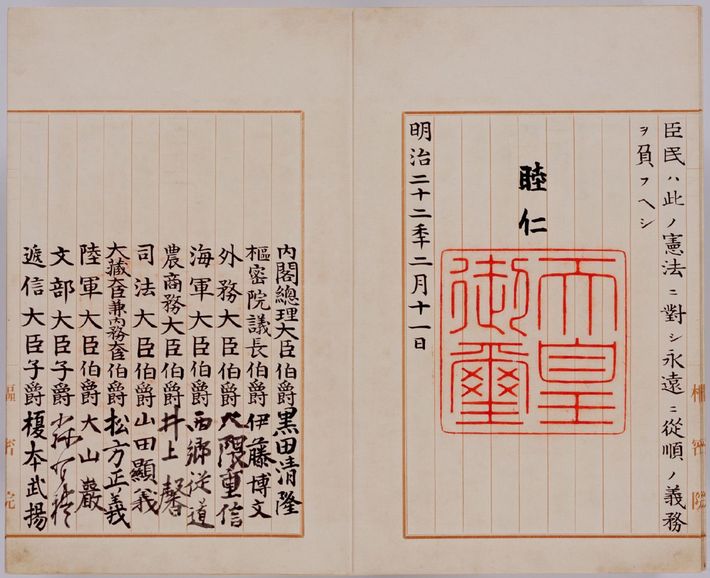 臣民ハ此ノ憲法ニ對シ永遠ニ從順ノ義務
ヲ負フヘシ
睦仁
天皇
御璽
明治二十二年二月十一日
樞密院
內閣總理大臣伯爵黑田清隆
樞密院議長伯爵伊藤博文
外務大臣伯爵大隈重信
海軍大臣伯爵西鄉從道
農商務大臣伯爵井上馨
司法大臣伯爵山田顯義
大藏大臣兼內務大臣伯爵松方正義
陸軍大臣伯爵大山巖
文部大臣子爵
遞信大臣子爵榎本武揚
樞密院